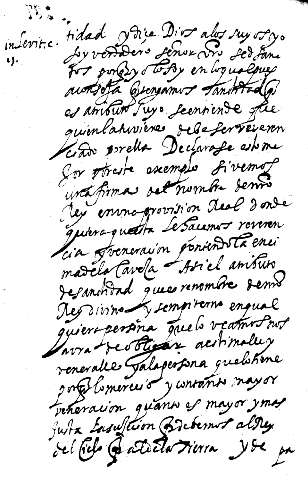 in levit. c.
tidad y dize Dios a los suyos yo
soy verdadero señor vro sed san
tos porq yo lo soy en lo qual pues
a con sola q tengamos sanctidad q
es atributo suyo se entiende que
quien la tuviere debe ser reveren
ciado por ella Declarase esto me
Jor por este exemplo si vemos
una firma del nombre de nro
Rey en una provision Real donde
quiera que esta le hacemos reveren
cia y veneracion poniendola enci
ma de la caveza Asi el atributo
de sanctidad que es renombre de nro
Rey divino y sempiterno en qual
quiera persona que lo veamos nos
avra de obligar a estimalla y
veneralla a la persona que lo tiene
porq lo merecio y con tanto mayor
veneracion quanto es mayor y mas
Justa la subjecion q debemos al Rey
del cielo q al de la tierra y de
pa